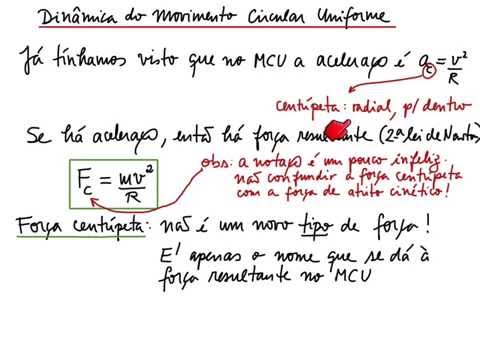 Dinâmica do Movimento Circular Uniforme
Já tínhamos visto que no MCU a aceleração é a_c = v²/R
centrípeta: radial, p/ dentro
Se há aceleração, então há força resultante (2ª lei de Newton)
F_c = mv²/R
obs: a notação é um pouco infeliz.
não confundir a força centrípeta
com a força de atrito cinético!
Força centrípeta: não é um novo tipo de força!
E' apenas o nome que se dá à
força resultante no MCU